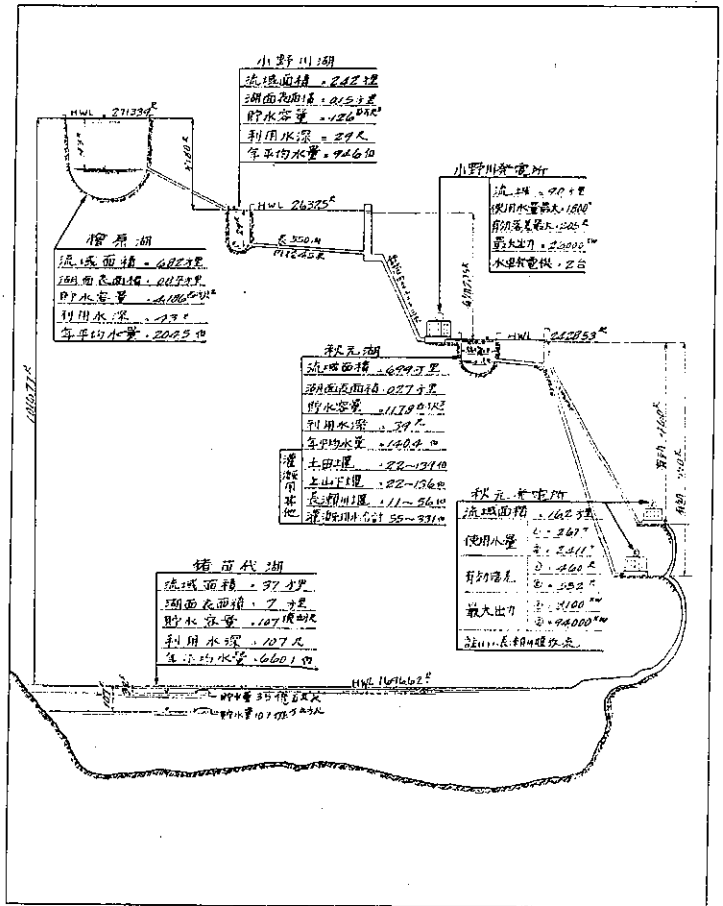 小野川湖
流域面積 = 2.42 方里
湖面表面積 = 0.15 方里
貯水容量 = 126
利用水深 = 29 尺
年平均水量 = 94.6 個
HWL 2713.39 尺
小野川発電所
流域 = 9.0 方里
使用水量最大 = 1,800
有効落差最大 = 205 尺
最大出力 = 23000 KW
水車発電機 = 2台
HWL 2637.5 尺
長 550
檜原湖
流域面積 = 6.82 方里
湖面表面積
貯水容量 = 4,186
利用水深 = 43 尺
年平均水量 = 204.5 個
HWL 2428.53 尺
秋元湖
流域面積 = 6.99 方里
湖面表面積 = 0.27 方里
貯水容量 = 1179
利用水深 = 39 尺
年平均水量 = 140.4 個
灌漑用其他
土田堰 = 22~139 個
上山下堰 = 22~136 個
長瀬川堰 = 11~56 個
灌漑用水合計 55~331 個
秋元発電所
流域面積 = 16.2 方里
使用水量 ① = 267
② = 2,411
有効落差 ① = 460 尺
② = 552 尺
最大出力 ① = 3100 KW
② = 94000 KW
猪苗代湖
流域面積 = 37 方里
湖面表面積 = 7 方里
貯水容量 = 107
利用水深 = 10.7 尺
年平均水量 = 660.1 個
HWL 1696.62 尺
貯水量 35 億立方尺
貯水量 107 億立方尺